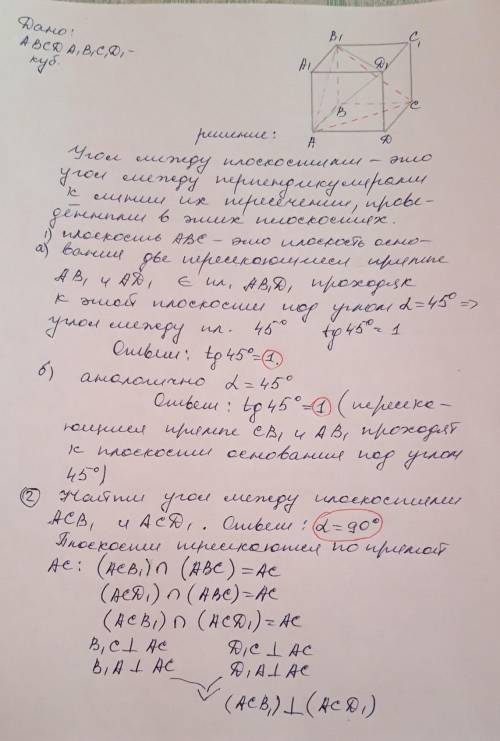 Дано:
ABCDA₁B₁C₁D₁ –
куб.
B₁ C₁
A₁ D₁
B C
A D
решение:
Угол между плоскостями – это
угол между перпендикулярами
к линии их пересечения, прове-
дёнными в этих плоскостях.
1) плоскость ABC – это плоскость осно-
а) вания две пересекающиеся прямые
AB₁ и AD₁ ∈ пл. AB₁D₁ проходят
к этой плоскости под углом α=45° =>
угол между пл. 45° tg45°=1
Ответ: tg45°=1.
б) аналогично α=45°
Ответ: tg45°=1 (пересека-
ющиеся прямые CB₁ и AB₁ проходят
к плоскости основания под углом
45°)
② Найти угол между плоскостями
ACB₁ и ACD₁. Ответ: α=90°
Плоскости пересекаются по прямой
AC: (ACB₁)∩(ABC)=AC
(ACD₁)∩(ABC)=AC
(ACB₁)∩(ACD₁)=AC
B₁C⊥AC D₁C⊥AC
B₁A⊥AC D₁A⊥AC
(ACB₁)⊥(ACD₁)